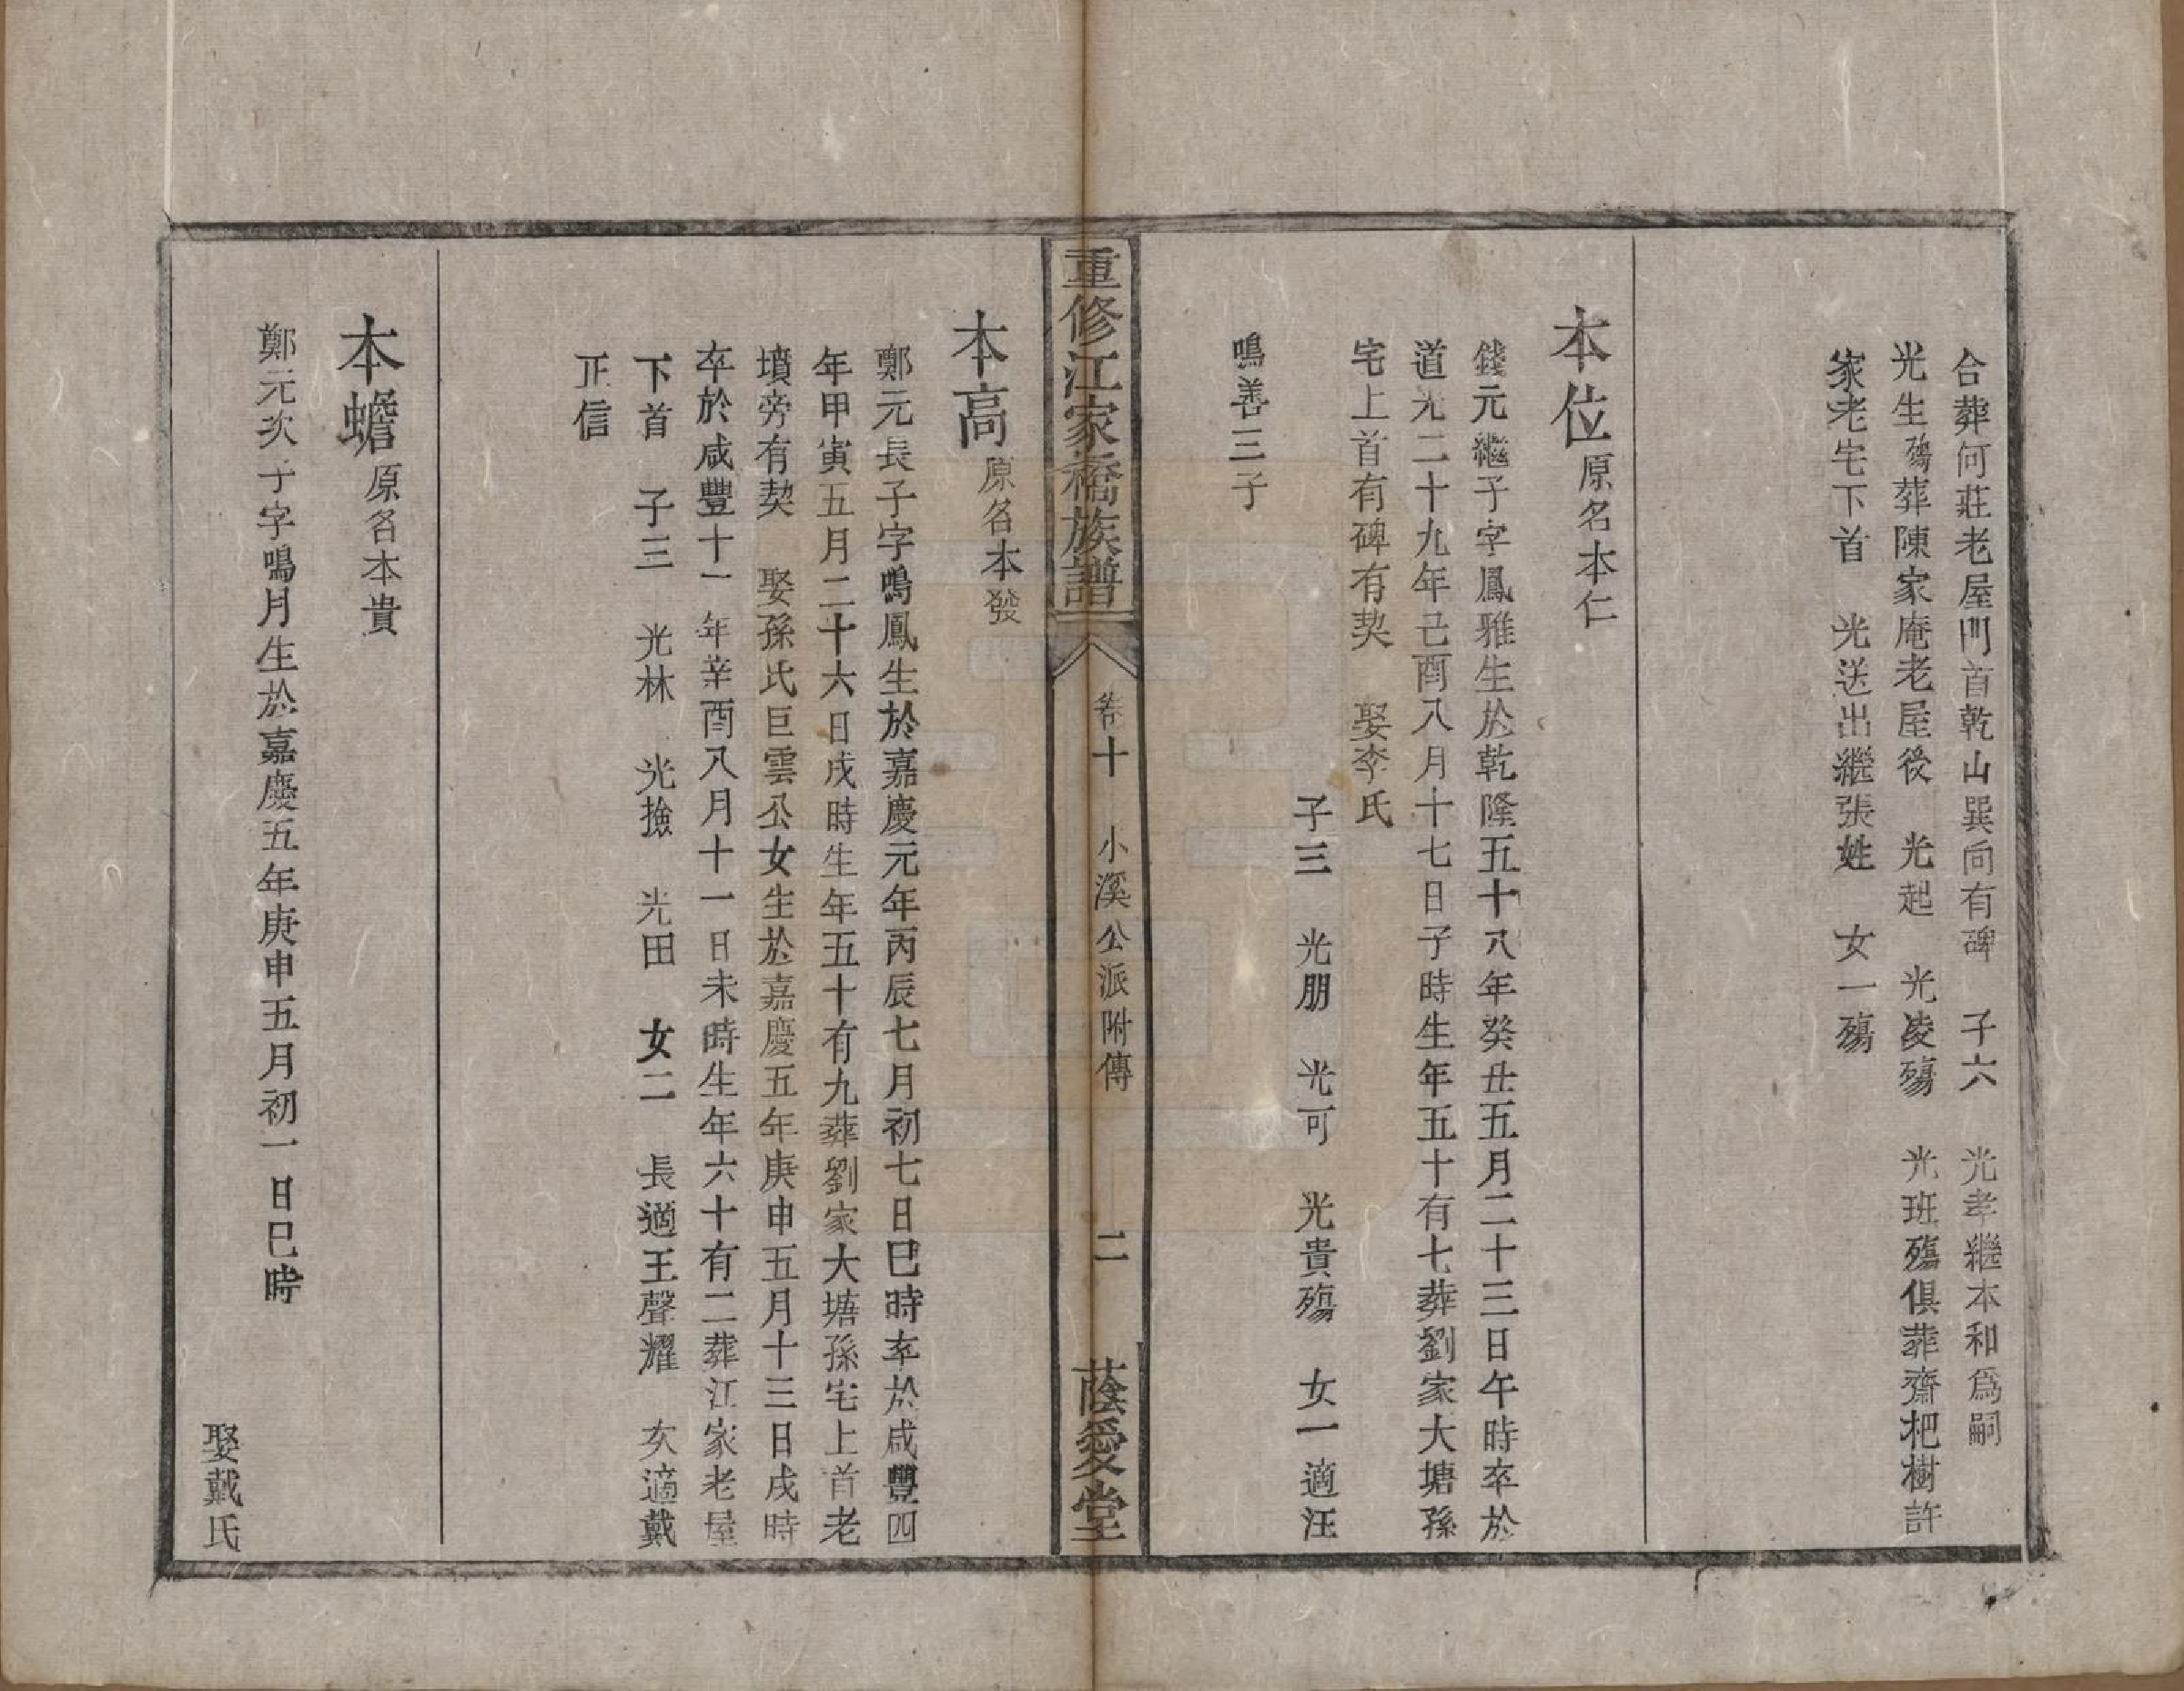 合葬何莊老屋門首乾山巽向有碑　子六　光孝繼本和爲嗣
光生殤葬陳家庵老屋後　光起　光凌殤　光班殤俱葬齋杷樹許
家老宅下首　光送出繼張姓　女一殤
本位原名本仁
錢元繼子字鳳雅生於乾隆五十八年癸丑五月二十三日午時卒於
道光二十九年己酉八月十七日子時生年五十有七葬劉家大塘孫
宅上首有碑有契　娶李氏
子三　光朋　光可　光貴殤　女一適汪
鳴善三子
重修江家橋族譜　卷十　小溪公派附傳　二　蔭愛堂
本高原名本發
鄭元長子字鳴鳳生於嘉慶元年丙辰七月初七日巳時卒於咸豐四
年甲寅五月二十六日戌時生年五十有九葬劉家大塘孫宅上首老
墳旁有契　娶孫氏巨雲公女生於嘉慶五年庚申五月十三日戌時
卒於咸豐十一年辛酉八月十一日未時生年六十有二葬江家老屋
下首　子三　光林　光撿　光田　女二　長適王聲耀　次適戴
正信
本蟾原名本貴
鄭元次子字鳴月生於嘉慶五年庚申五月初一日巳時
娶戴氏